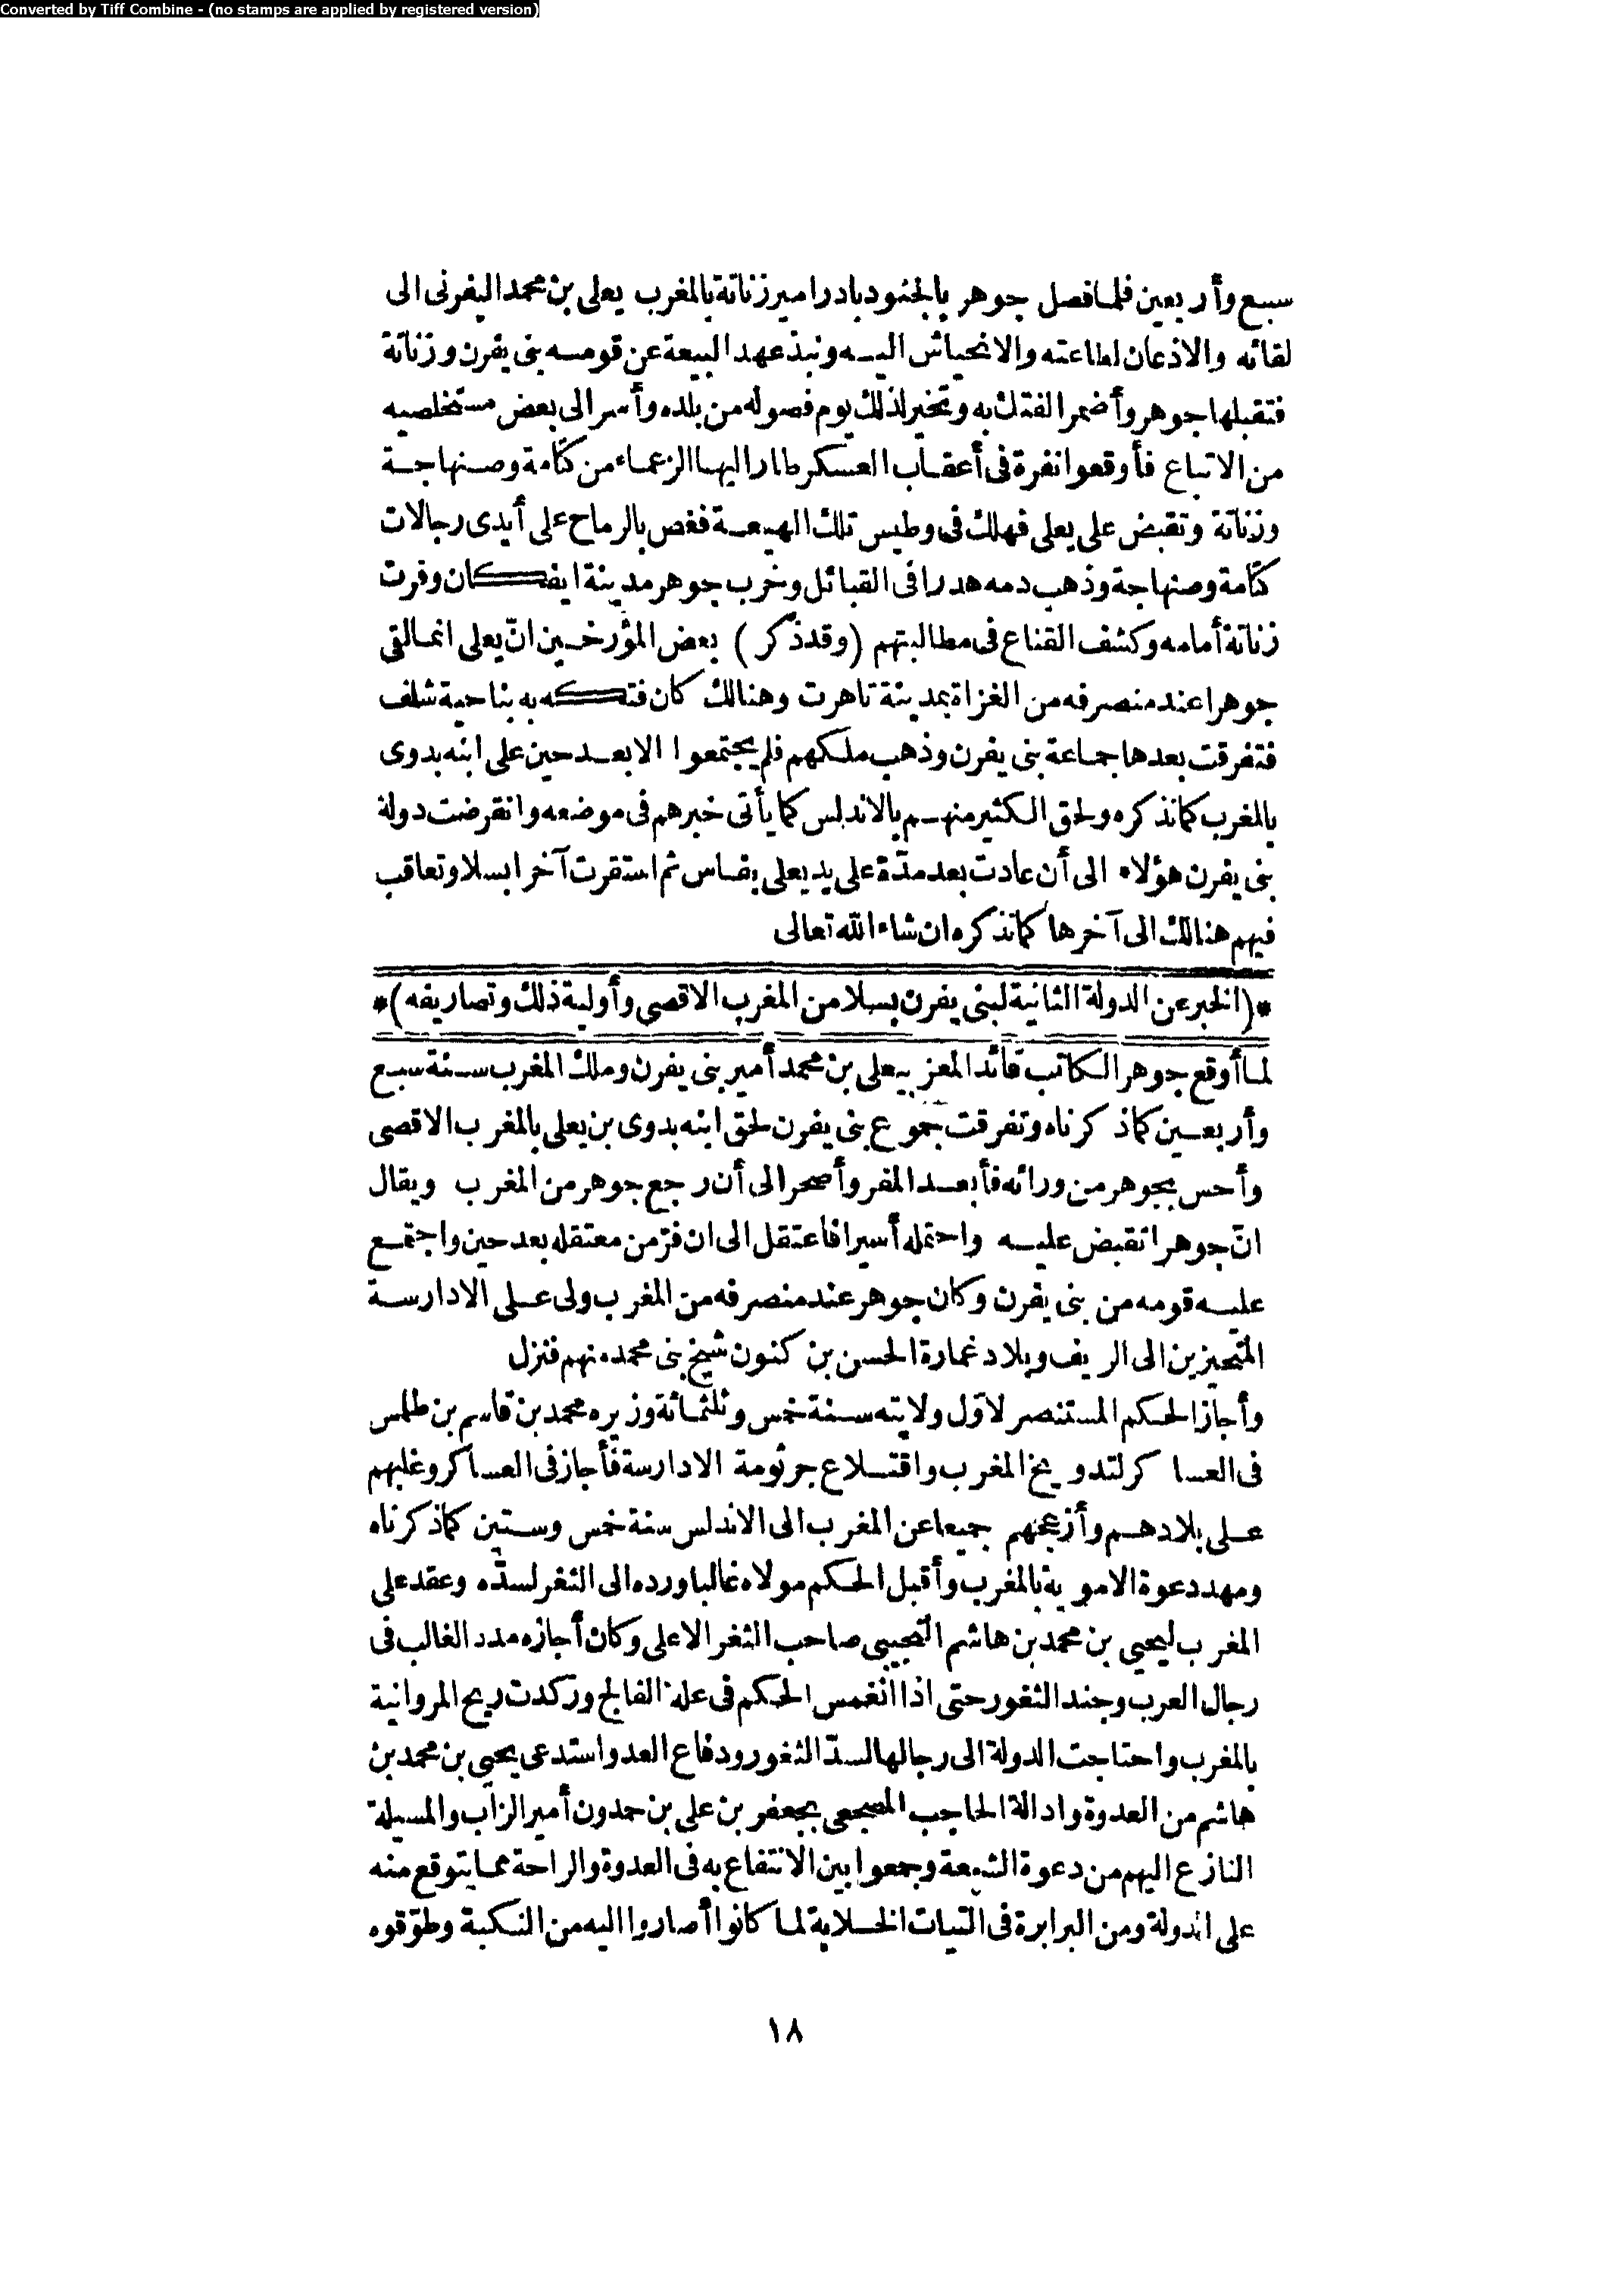 Converted by Tiff Combine - (no stamps are applied by registered version)
سبع وأربعين فلما فصل جوهر بالجنود بادر امير زناتة بالمغرب يعلى بن محمد اليفرنى الى
لقائه والاذعان لطاعته والانحياش اليه ونبذ عهد البيعة عن قومه بنى يفرن وزناتة
فتقبلها جوهر وأضمر الفتك به وتخير لذلك يوم فصوله من بلده وأسر الى بعض مستخلصيه
من الاتباع فأوقعوا نفرة فى أعقاب العسكر طار اليها الزعماء من كتامة وصنهاجة
وزناتة وتقبض على يعلى فهلك فى وطيس تلك الهيعة فغص بالرماح على أيدى رجالات
كتامة وصنهاجة وذهب دمه هدرا فى القبائل وخرب جوهر مدينة ايفكان وفرت
زناتة أمامه وكشف القناع فى مطالبتهم (وقد ذكر) بعض المؤرخين انّ يعلى انما لقى
جوهرا عند منصرفه من الغزاة بمدينة تاهرت وهنالك كان فتكه به بناحية شلف
فتفرقت بعدها جماعة بنى يفرن وذهب ملكهم فلم يجتمعوا الا بعد حين على ابنه بدوى
بالمغرب كما نذكره ولحق الكثير منهم بالاندلس كما يأتى خبرهم فى موضعه وانقرضت دولة
بنى يفرن هؤلاء الى أن عادت بعد مدّة على يد يعلى بفاس ثم استقرت آخرا بسلا وتعاقب
فيهم هنالك الى آخرها كما نذكره ان شاء الله تعالى
*(الخبر عن الدولة الثانية لبنى يفرن بسلا من المغرب الاقصى وأولية ذلك وتصاريفه)*
لما أوقع جوهر الكاتب قائد المعز بيعلى بن محمد أمير بنى يفرن وملك المغرب سنة سبع
وأربعين كما ذكرناه وتفرقت جموع بنى يفرن لحق ابنه بدوى بن يعلى بالمغرب الاقصى
وأحس بجوهر من ورائه فأبعد المفر وأصحر الى أن رجع جوهر من المغرب ويقال
انّ جوهرا تقبض عليه واحتمله أسيرا فاعتقل الى ان فرّ من معتقله بعد حين واجتمع
عليه قومه من بنى يفرن وكان جوهر عند منصرفه من المغرب ولى على الادارسة
المتحيزين الى الريف وبلاد غمارة الحسن بن كنون شيخ بنى محمد منهم فنزل
وأجاز الحكم المستنصر لاوّل ولايته سنة خمس وثلثمائة وزيره محمد بن قاسم بن طملس
فى العساكر لتدويخ المغرب واقتلاع جرثومة الادارسة فأجاز فى العساكر وغلبهم
على بلادهم وأزعجهم جميعا عن المغرب الى الاندلس سنة خمس وستين كما ذكرناه
ومهد دعوة الاموية بالمغرب وأقبل الحكم مولاه غالبا ورده الى الثغر لسدّه وعقد على
المغرب ليحيى بن محمد بن هاشم التجيبى صاحب الثغر الاعلى وكان أجازه مدد الغالب فى
رجال العرب وجند الثغور حتى اذا انغمس الحكم فى علة الفالج وركدت ريح المروانية
بالمغرب واحتاجت الدولة الى رجالها لسدّ الثغور ودفاع العدو استدعى يحيى بن محمد بن
هاشم من العدوة وادالة الحاجب المصحفى بجعفر بن على بن حمدون أمير الزاب والمسيلة
النازع اليهم من دعوة الشيعة وجمعوا بين الانتفاع به فى العدوة والراحة مما يتوقع منه
على الدولة ومن البرابرة فى التيات الخلابة لما كانوا أصاروا اليه من النكبة وطوّقوه
١٨